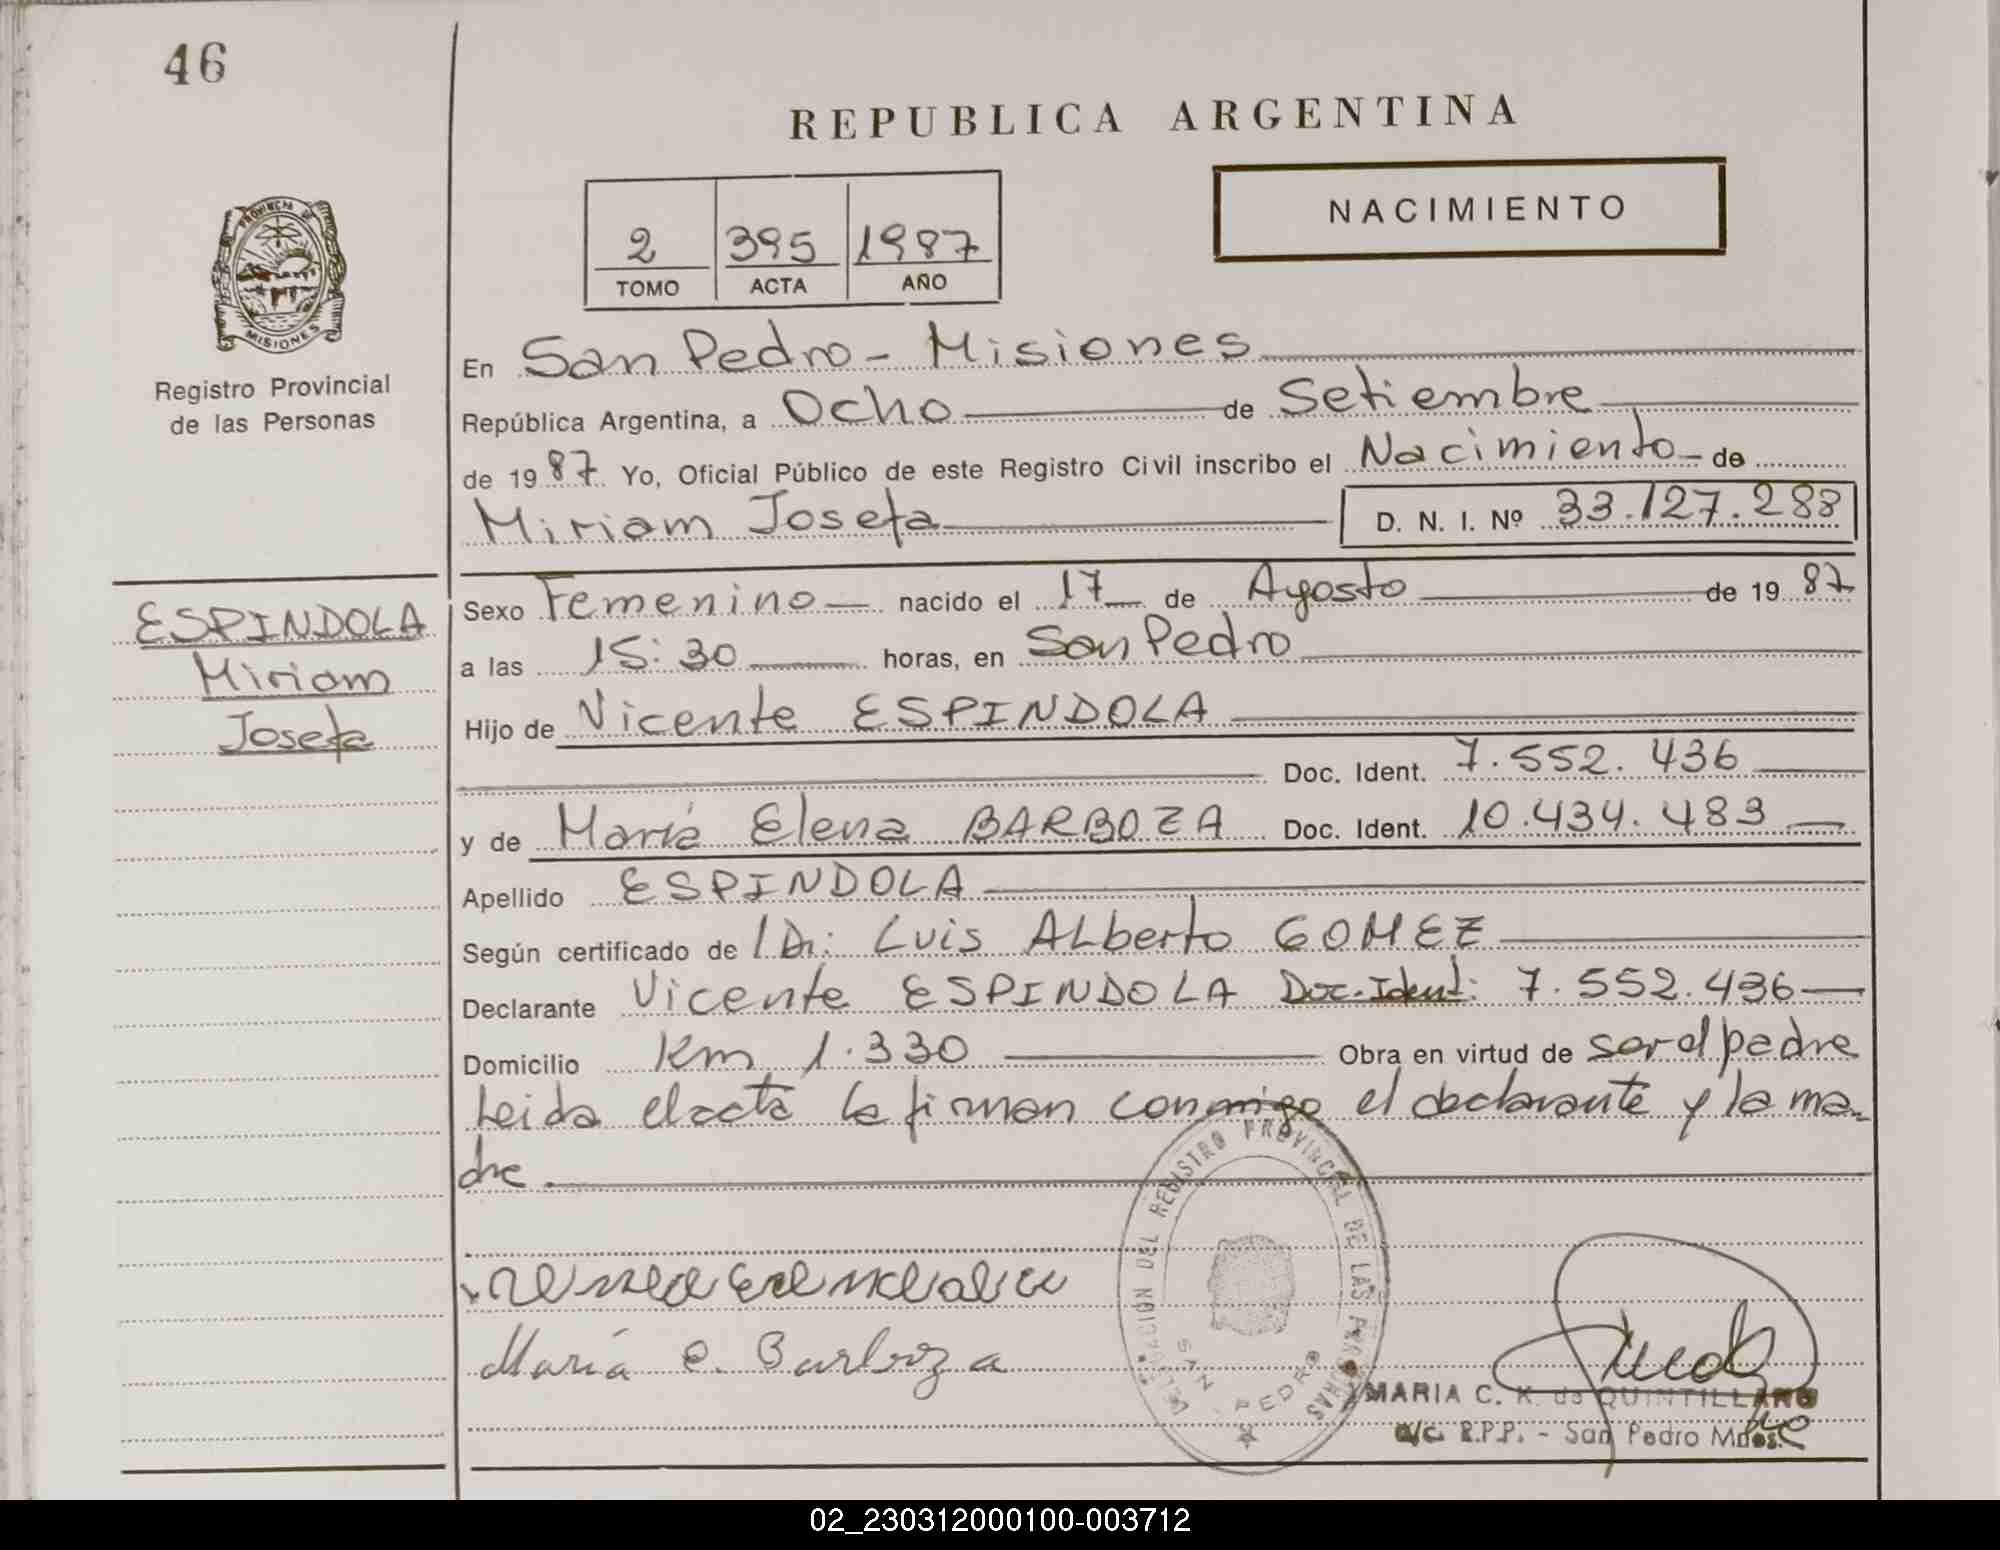 46
REPUBLICA ARGENTINA
NACIMIENTO
2 395 1987
TOMO ACTA AÑO
PROVINCIA DE
MISIONES
Registro Provincial
de las Personas
En San Pedro - Misiones
República Argentina, a Ocho de Setiembre
de 1987. Yo, Oficial Público de este Registro Civil inscribo el Nacimiento de
Miriam Josefa D. N. I. Nº 33.127.288
ESPINDOLA
Miriam
Josefa
Sexo Femenino nacido el 17 de Agosto de 1987
a las 15:30 horas, en San Pedro
Hijo de Vicente ESPINDOLA
Doc. Ident. 7.552.436
y de María Elena BARBOZA Doc. Ident. 10.434.483
Apellido ESPINDOLA
Según certificado de Dr: Luis Alberto GOMEZ
Declarante Vicente ESPINDOLA Doc. Ident: 7.552.436
Domicilio Km 1.330 Obra en virtud de ser el padre
Leida el acta la firman conmigo el declarante y la ma-
dre
María e. Barboza
DELEGACION DEL REGISTRO PROVINCIAL DE LAS PERSONAS
SAN PEDRO
MARIA C. K. de QUINTILLANO
a/c. R.P.P. - San Pedro Mnes.
02_230312000100-003712